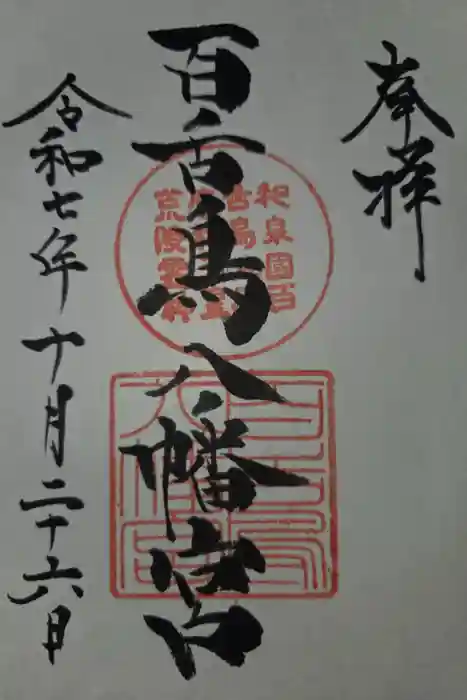 奉拝
百舌鳥八幡宮
令和七年十月二十六日
和泉國百
百舌鳥
八幡宮